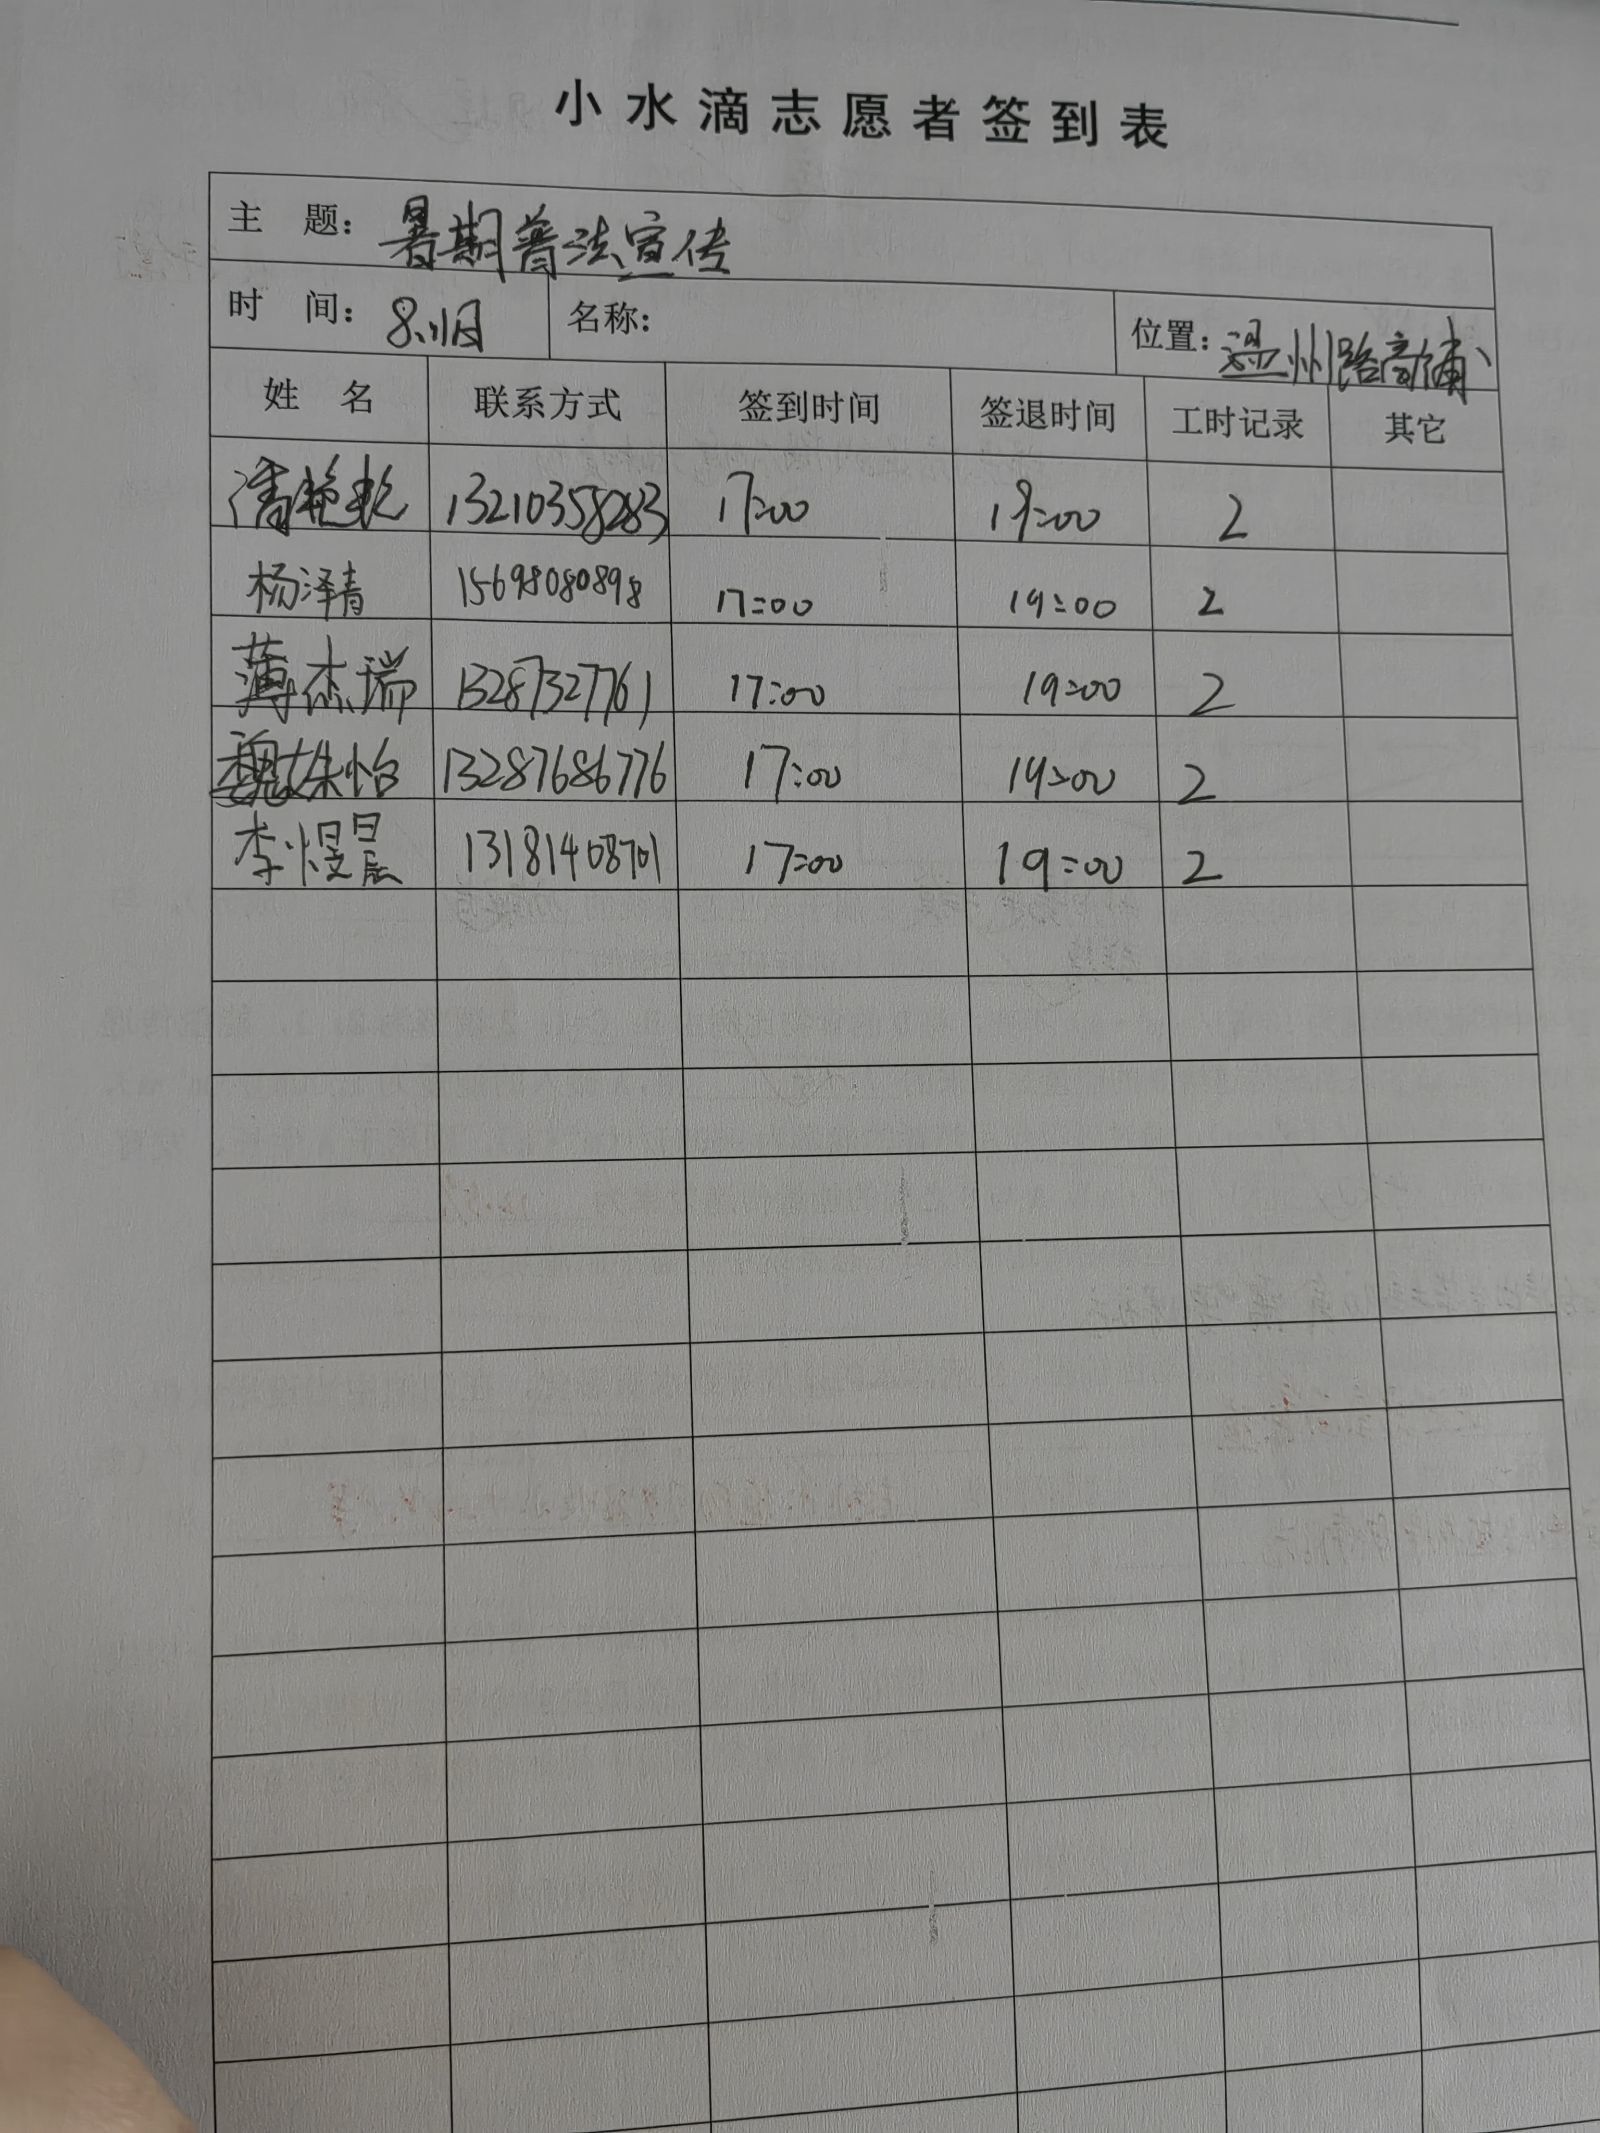 小水滴志愿者签到表
主 题： 暑期普法宣传
时 间： 名称： 位置： 温州路
姓 名 联系方式 签到时间 签退时间 工时记录 其它
13210358283 17:00 19:00 2
杨泽青 15698080898 17:00 19:00 2
薄杰瑞 13287327761 17:00 19:00 2
魏姝怡 13287686776 17:00 19:00 2
李煜晨 13181408701 17:00 19:00 2